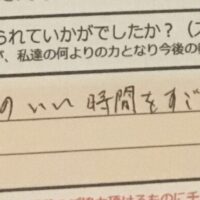 られていかがでしたか？（
が、私達の何よりの力となり今後の
のいい時間をすご